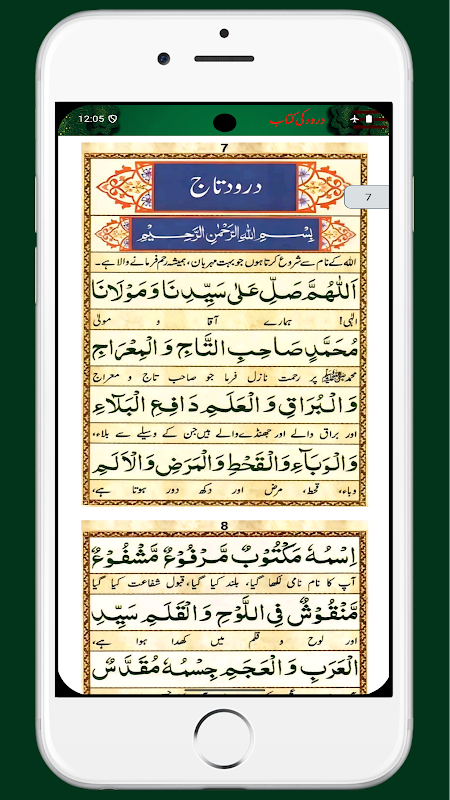 12:05
درود کی کتاب
7
7
درود تاج
بِسْمِ اللهِ الرَّحْمٰنِ الرَّحِيْمِ
اللہ کے نام سے شروع کرتا ہوں جو بہت مہربان، ہمیشہ رحم فرمانے والا ہے۔
اَللّٰهُمَّ صَلِّ عَلٰى سَيِّدِنَا وَمَوْلَانَا
الٰہی! ہمارے آقا و مولیٰ
مُحَمَّدٍ صَاحِبِ التَّاجِ وَالْمِعْرَاجِ
محمد ﷺ پر رحمت نازل فرما جو صاحب تاج و معراج
وَالْبُرَاقِ وَالْعَلَمِ دَافِعِ الْبَلَاءِ
اور براق والے اور جھنڈے والے ہیں جن کے وسیلے سے بلاء،
وَالْوَبَاءِ وَالْقَحْطِ وَالْمَرَضِ وَالْاَلَمِ
وباء، قحط، مرض اور دکھ دور ہوتا ہے،
8
اِسْمُهٗ مَكْتُوْبٌ مَّرْفُوْعٌ مَّشْفُوْعٌ
آپ کا نام نامی لکھا گیا، بلند کیا گیا، قبول شفاعت کیا گیا
مَّنْقُوْشٌ فِي اللَّوْحِ وَالْقَلَمِ سَيِّدِ
اور لوح و قلم میں کھدا ہوا ہے،
الْعَرَبِ وَالْعَجَمِ جِسْمُهٗ مُقَدَّسٌ